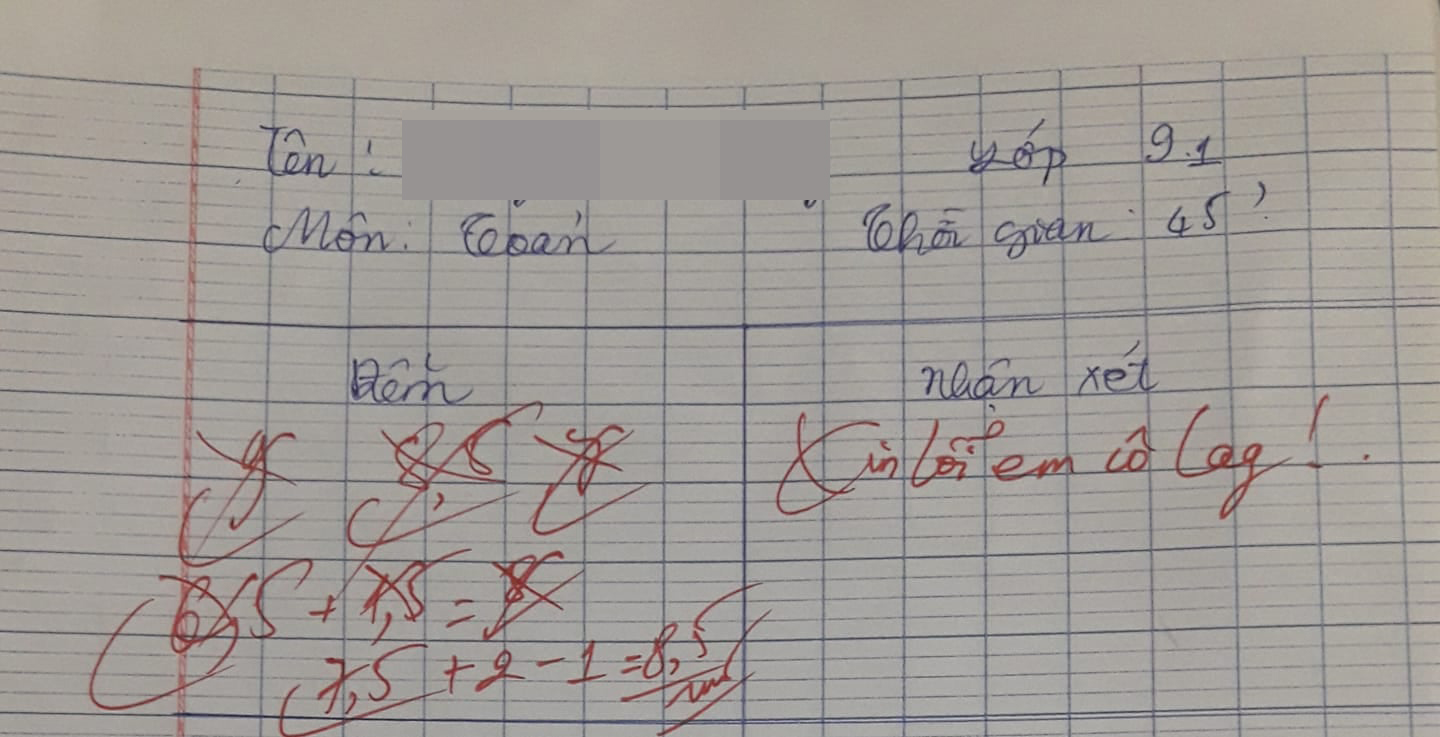 Tên :
Lớp 9.1
Môn: Toán
Thời gian: 45'
Điểm
nhận xét
9 8,5 7
Xin lỗi em cô lag!.
6,5 + 1,5 = 8
7,5 + 2 - 1 = 8,5